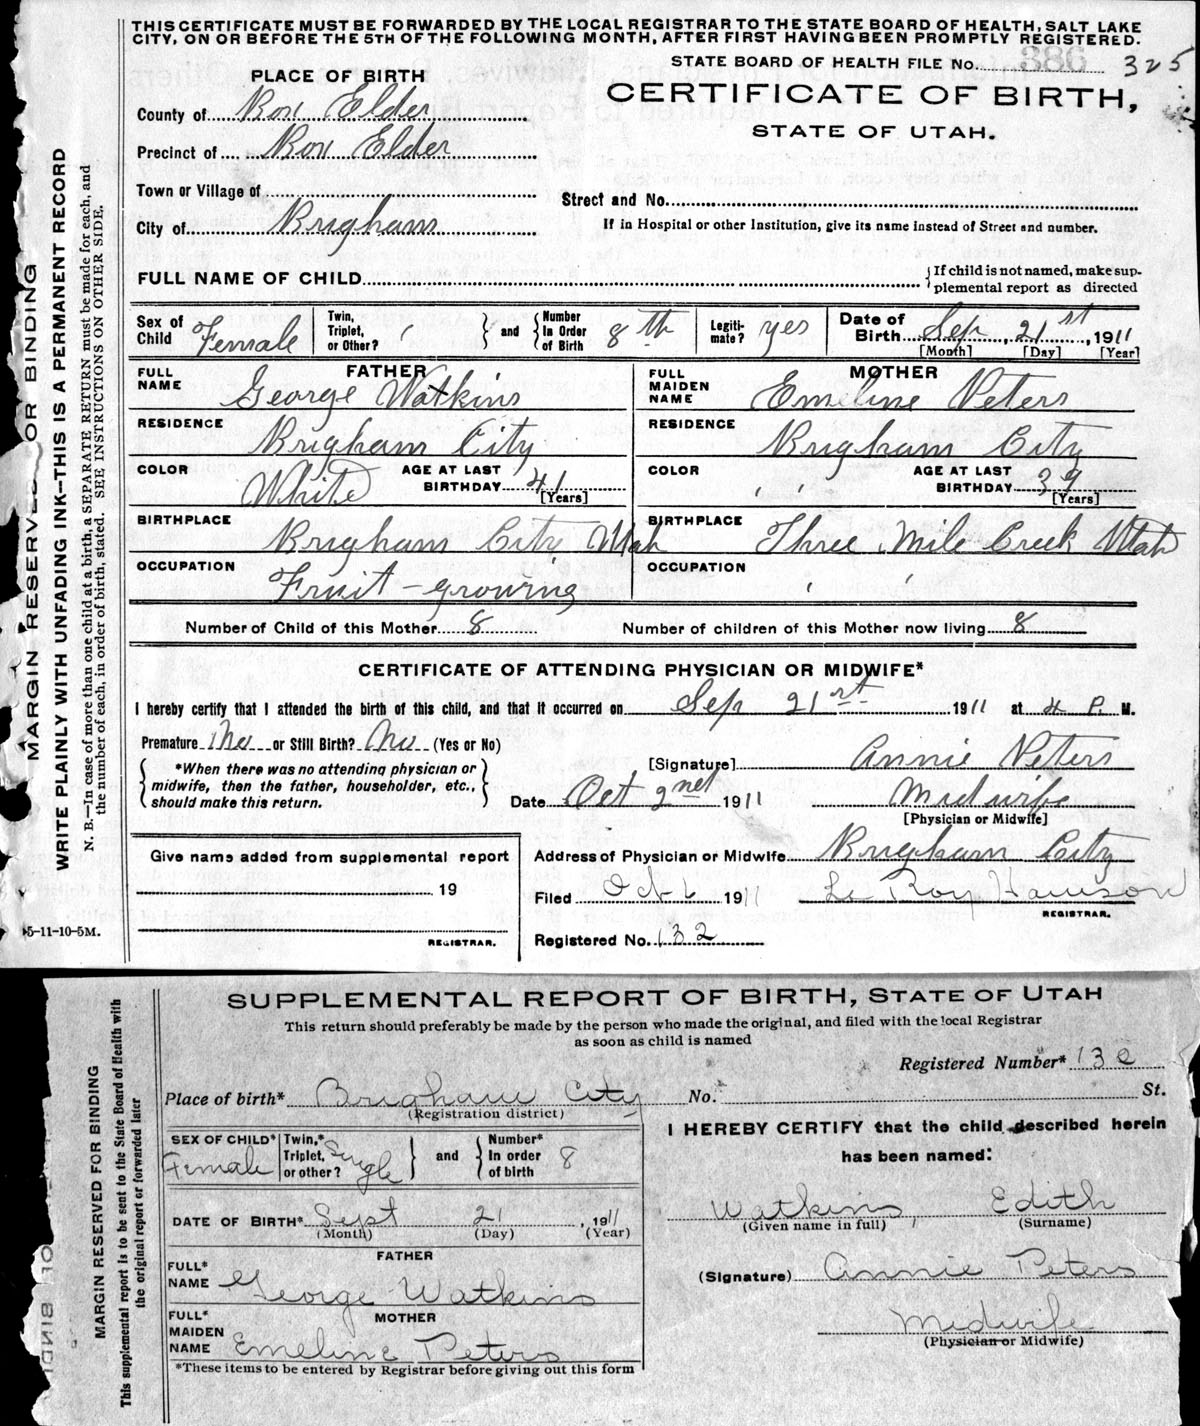 THIS CERTIFICATE MUST BE FORWARDED BY THE LOCAL REGISTRAR TO THE STATE BOARD OF HEALTH, SALT LAKE
CITY, ON OR BEFORE THE 5TH OF THE FOLLOWING MONTH, AFTER FIRST HAVING BEEN PROMPTLY REGISTERED.
STATE BOARD OF HEALTH FILE No. 386 325
PLACE OF BIRTH
CERTIFICATE OF BIRTH,
STATE OF UTAH.
County of Box Elder
Precinct of Box Elder
Town or Village of
Street and No.
City of Brigham
If in Hospital or other Institution, give its name instead of Street and number.
FULL NAME OF CHILD
If child is not named, make sup-
plemental report as directed
Sex of Child Female
Twin, Triplet, or Other?
and
Number In Order of Birth 8th
Legiti-mate? yes
Date of Birth Sep 21st, 1911
[Month] [Day] [Year]
FATHER
FULL NAME George Watkins
RESIDENCE Brigham City
COLOR White
AGE AT LAST BIRTHDAY 41
[Years]
BIRTHPLACE Brigham City Utah
OCCUPATION Fruit-growing
MOTHER
FULL MAIDEN NAME Emeline Peters
RESIDENCE Brigham City
COLOR ' '
AGE AT LAST BIRTHDAY 39
[Years]
BIRTHPLACE Three Mile Creek Utah
OCCUPATION ' '
Number of Child of this Mother 8
Number of children of this Mother now living 8
CERTIFICATE OF ATTENDING PHYSICIAN OR MIDWIFE*
I hereby certify that I attended the birth of this child, and that it occurred on Sep 21rst 1911 at 4 P. M.
Premature No or Still Birth? No (Yes or No)
*When there was no attending physician or
midwife, then the father, householder, etc.,
should make this return.
[Signature] Annie Peters
Date Oct 2nd 1911
Midwife
[Physician or Midwife]
Give name added from supplemental report
19
REGISTRAR.
Address of Physician or Midwife Brigham City
Filed Oct 6 1911
Le Roy
REGISTRAR.
Registered No. 132
5-11-10-5M.
MARGIN RESERVED FOR BINDING
WRITE PLAINLY WITH UNFADING INK—THIS IS A PERMANENT RECORD
N. B.—In case of more than one child at a birth, a SEPARATE RETURN must be made for each, and
the number of each, in order of birth, stated. SEE INSTRUCTIONS ON OTHER SIDE.
SUPPLEMENTAL REPORT OF BIRTH, STATE OF UTAH
This return should preferably be made by the person who made the original, and filed with the local Registrar
as soon as child is named
Registered Number*
Place of birth* Brigham City No. St.
(Registration district)
SEX OF CHILD* Female
Twin,* Triplet, or other? Single
and
Number* In order of birth 8
DATE OF BIRTH* Sept 21, 1911
(Month) (Day) (Year)
FATHER
FULL* NAME George Watkins
MOTHER
FULL* MAIDEN NAME Emeline Peters
*These items to be entered by Registrar before giving out this form
I HEREBY CERTIFY that the child described herein
has been named:
Watkins, Edith
(Given name in full) (Surname)
(Signature) Annie Peters
Midwife
(Physician or Midwife)
MARGIN RESERVED FOR BINDING
This supplemental report is to be sent to the State Board of Health with
the original report or forwarded later